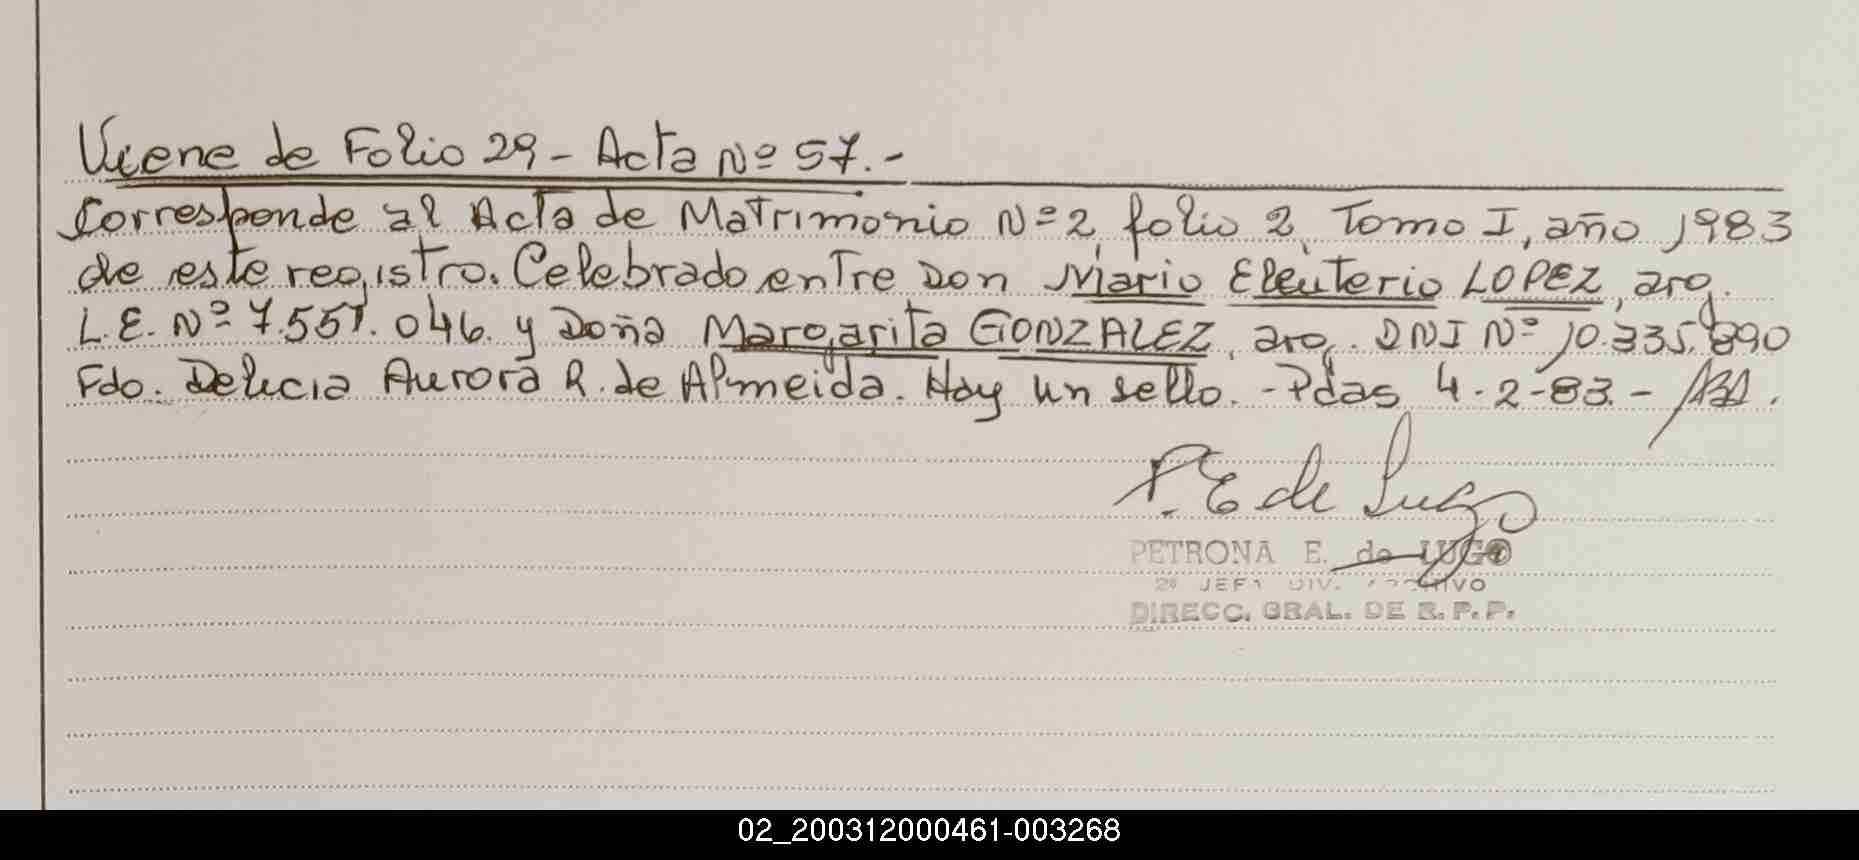 Viene de Folio 29 - Acta Nº 57.-
Corresponde al Acta de Matrimonio Nº 2, folio 2, Tomo I, año 1983
de este registro. Celebrado entre Don Mario Eleuterio LOPEZ, arg.
L.E. Nº 7.551.046. y Doña Margarita GONZALEZ, arg. DNI Nº 10.335.890
Fdo. Delicia Aurora R. de Almeida. Hay un sello. - Pdas 4-2-83.-
P. E de Lugo
PETRONA E. de LUGO
2º JEFA DIV. ARCHIVO
DIRECC. GRAL. DE R. P. P.
02_200312000461-003268